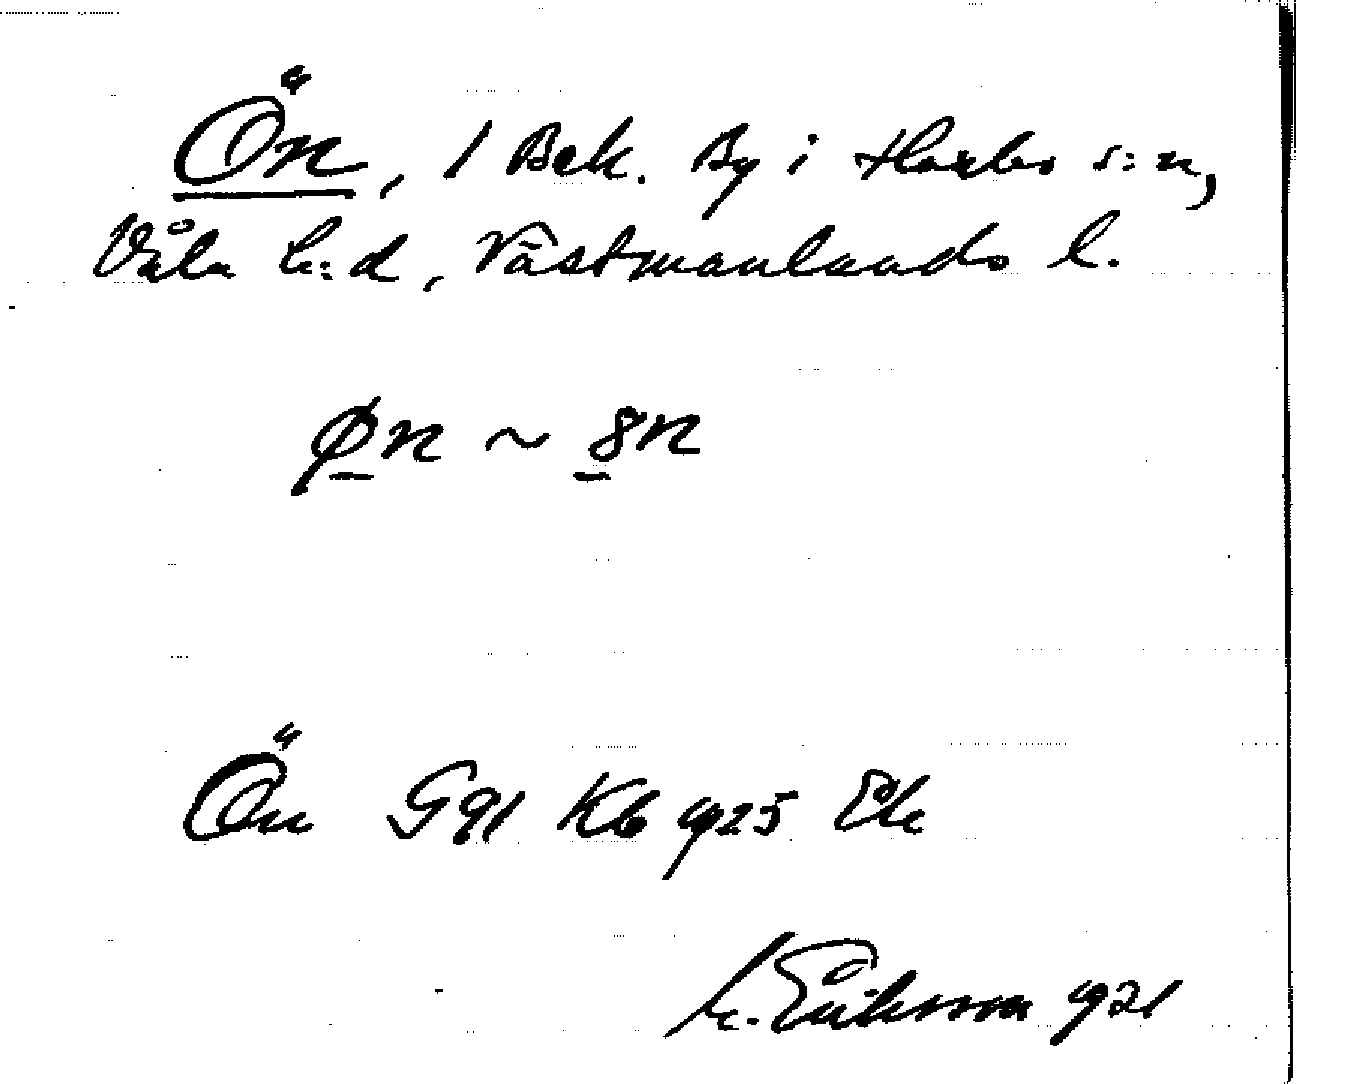 Ön, 1 Bek. By i Harbo s:n,
Våla h:d, Västmanlands l.
øn ~ 8n
Ön G91 Kb 1925 Ek
Eriksson 1921